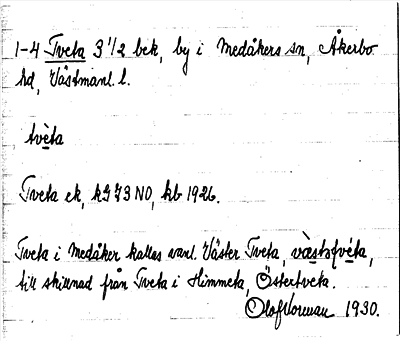 1-4 Tveta 3 1/2 bek, by i Medåkers sn, Åkerbo
hd, Västmanl. l.
tvèta
Tveta ek, k973 NO, kb 1926.
Tveta i Medåker kallas vanl. Väster Tveta,
till skillnad från Tveta i Himmeta, Östertveta.
Olof Norman 1930.